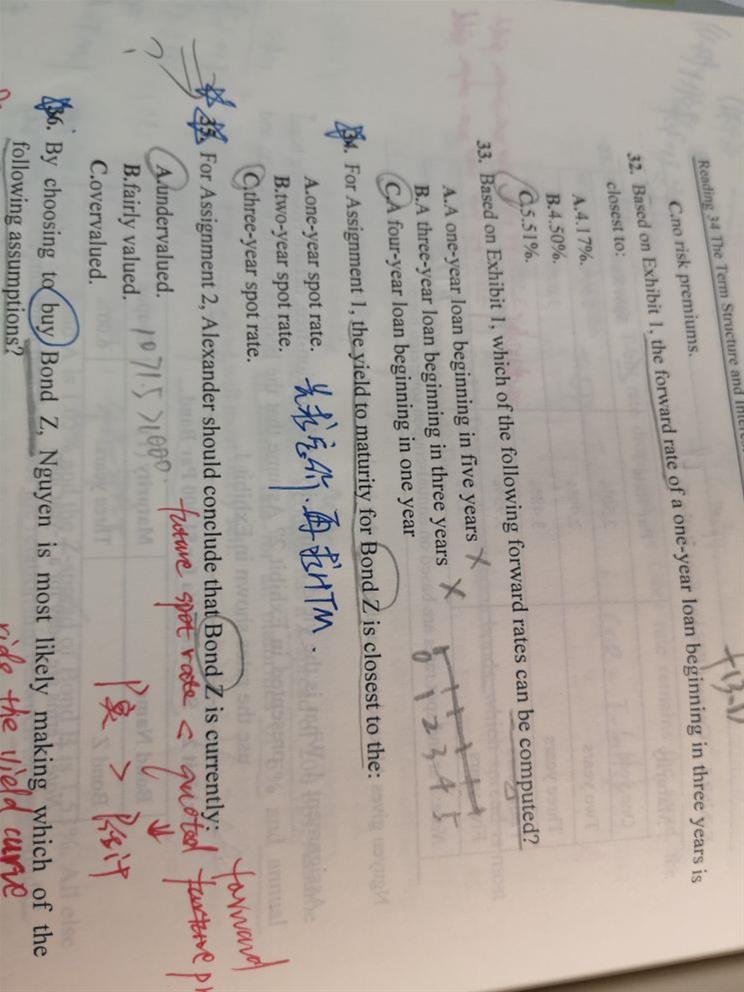 Reading 34 The Term Structure and
C.no risk premiums.
f(3,1)
32. Based on Exhibit 1, the forward rate of a one-year loan beginning in three years is
closest to:
A.4.17%.
B.4.50%.
C.5.51%.
33. Based on Exhibit 1, which of the following forward rates can be computed?
A.A one-year loan beginning in five years ×
B.A three-year loan beginning in three years ×
C.A four-year loan beginning in one year
0 1 2 3 4 5
34. For Assignment 1, the yield to maturity for Bond Z is closest to the:
A.one-year spot rate.
先求定价.再求YTM.
B.two-year spot rate.
C.three-year spot rate.
35. For Assignment 2, Alexander should conclude that Bond Z is currently:
A.undervalued.
future spot rate < quoted forward
B.fairly valued. 1071.5 > 1000
C.overvalued.
36. By choosing to buy Bond Z, Nguyen is most likely making which of the
following assumptions?
ride the yield curve